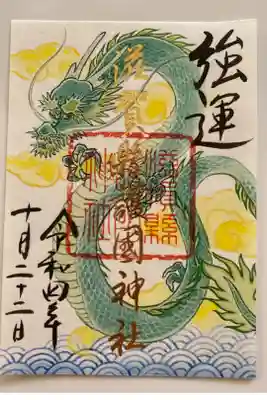 強運
滋賀縣護國神社
令和四年
十月二十二日